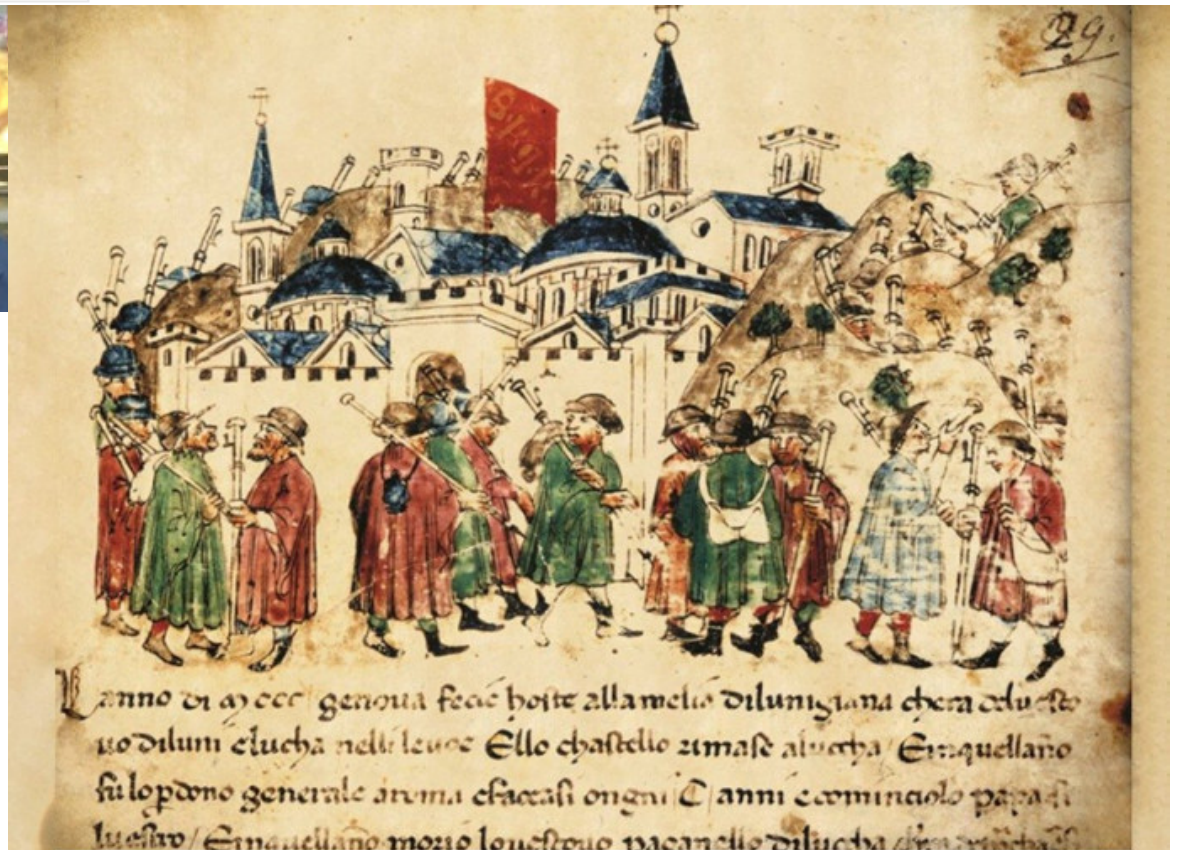 29.
Lanno di MCCC genoua fecie hoste allamelia dilunigiana chera deluesco
uo diluni elucha Ello chastello rimase alucha / Einquellano
fu lo pdono generale aroma efaccasi ongni C anni ecominciolo papa si
luestro / Einquellano morio louescouo paganello dilucha